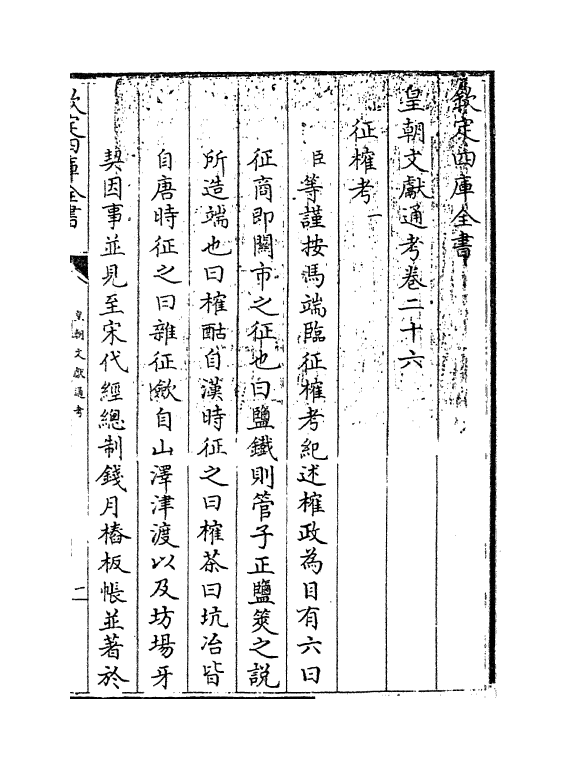 欽定四庫全書
皇朝文獻通考卷二十六
征榷考一
臣等謹按馬端臨征榷考紀述榷政為目有六曰
征商即關市之征也曰鹽鐵則管子正鹽筴之說
所造端也曰榷酤自漢時征之曰榷茶曰坑冶皆
自唐時征之曰雜征歛自山澤津渡以及坊場牙
契因事並見至宋代經總制錢月樁板帳並著於
欽定四庫全書
皇朝文獻通考